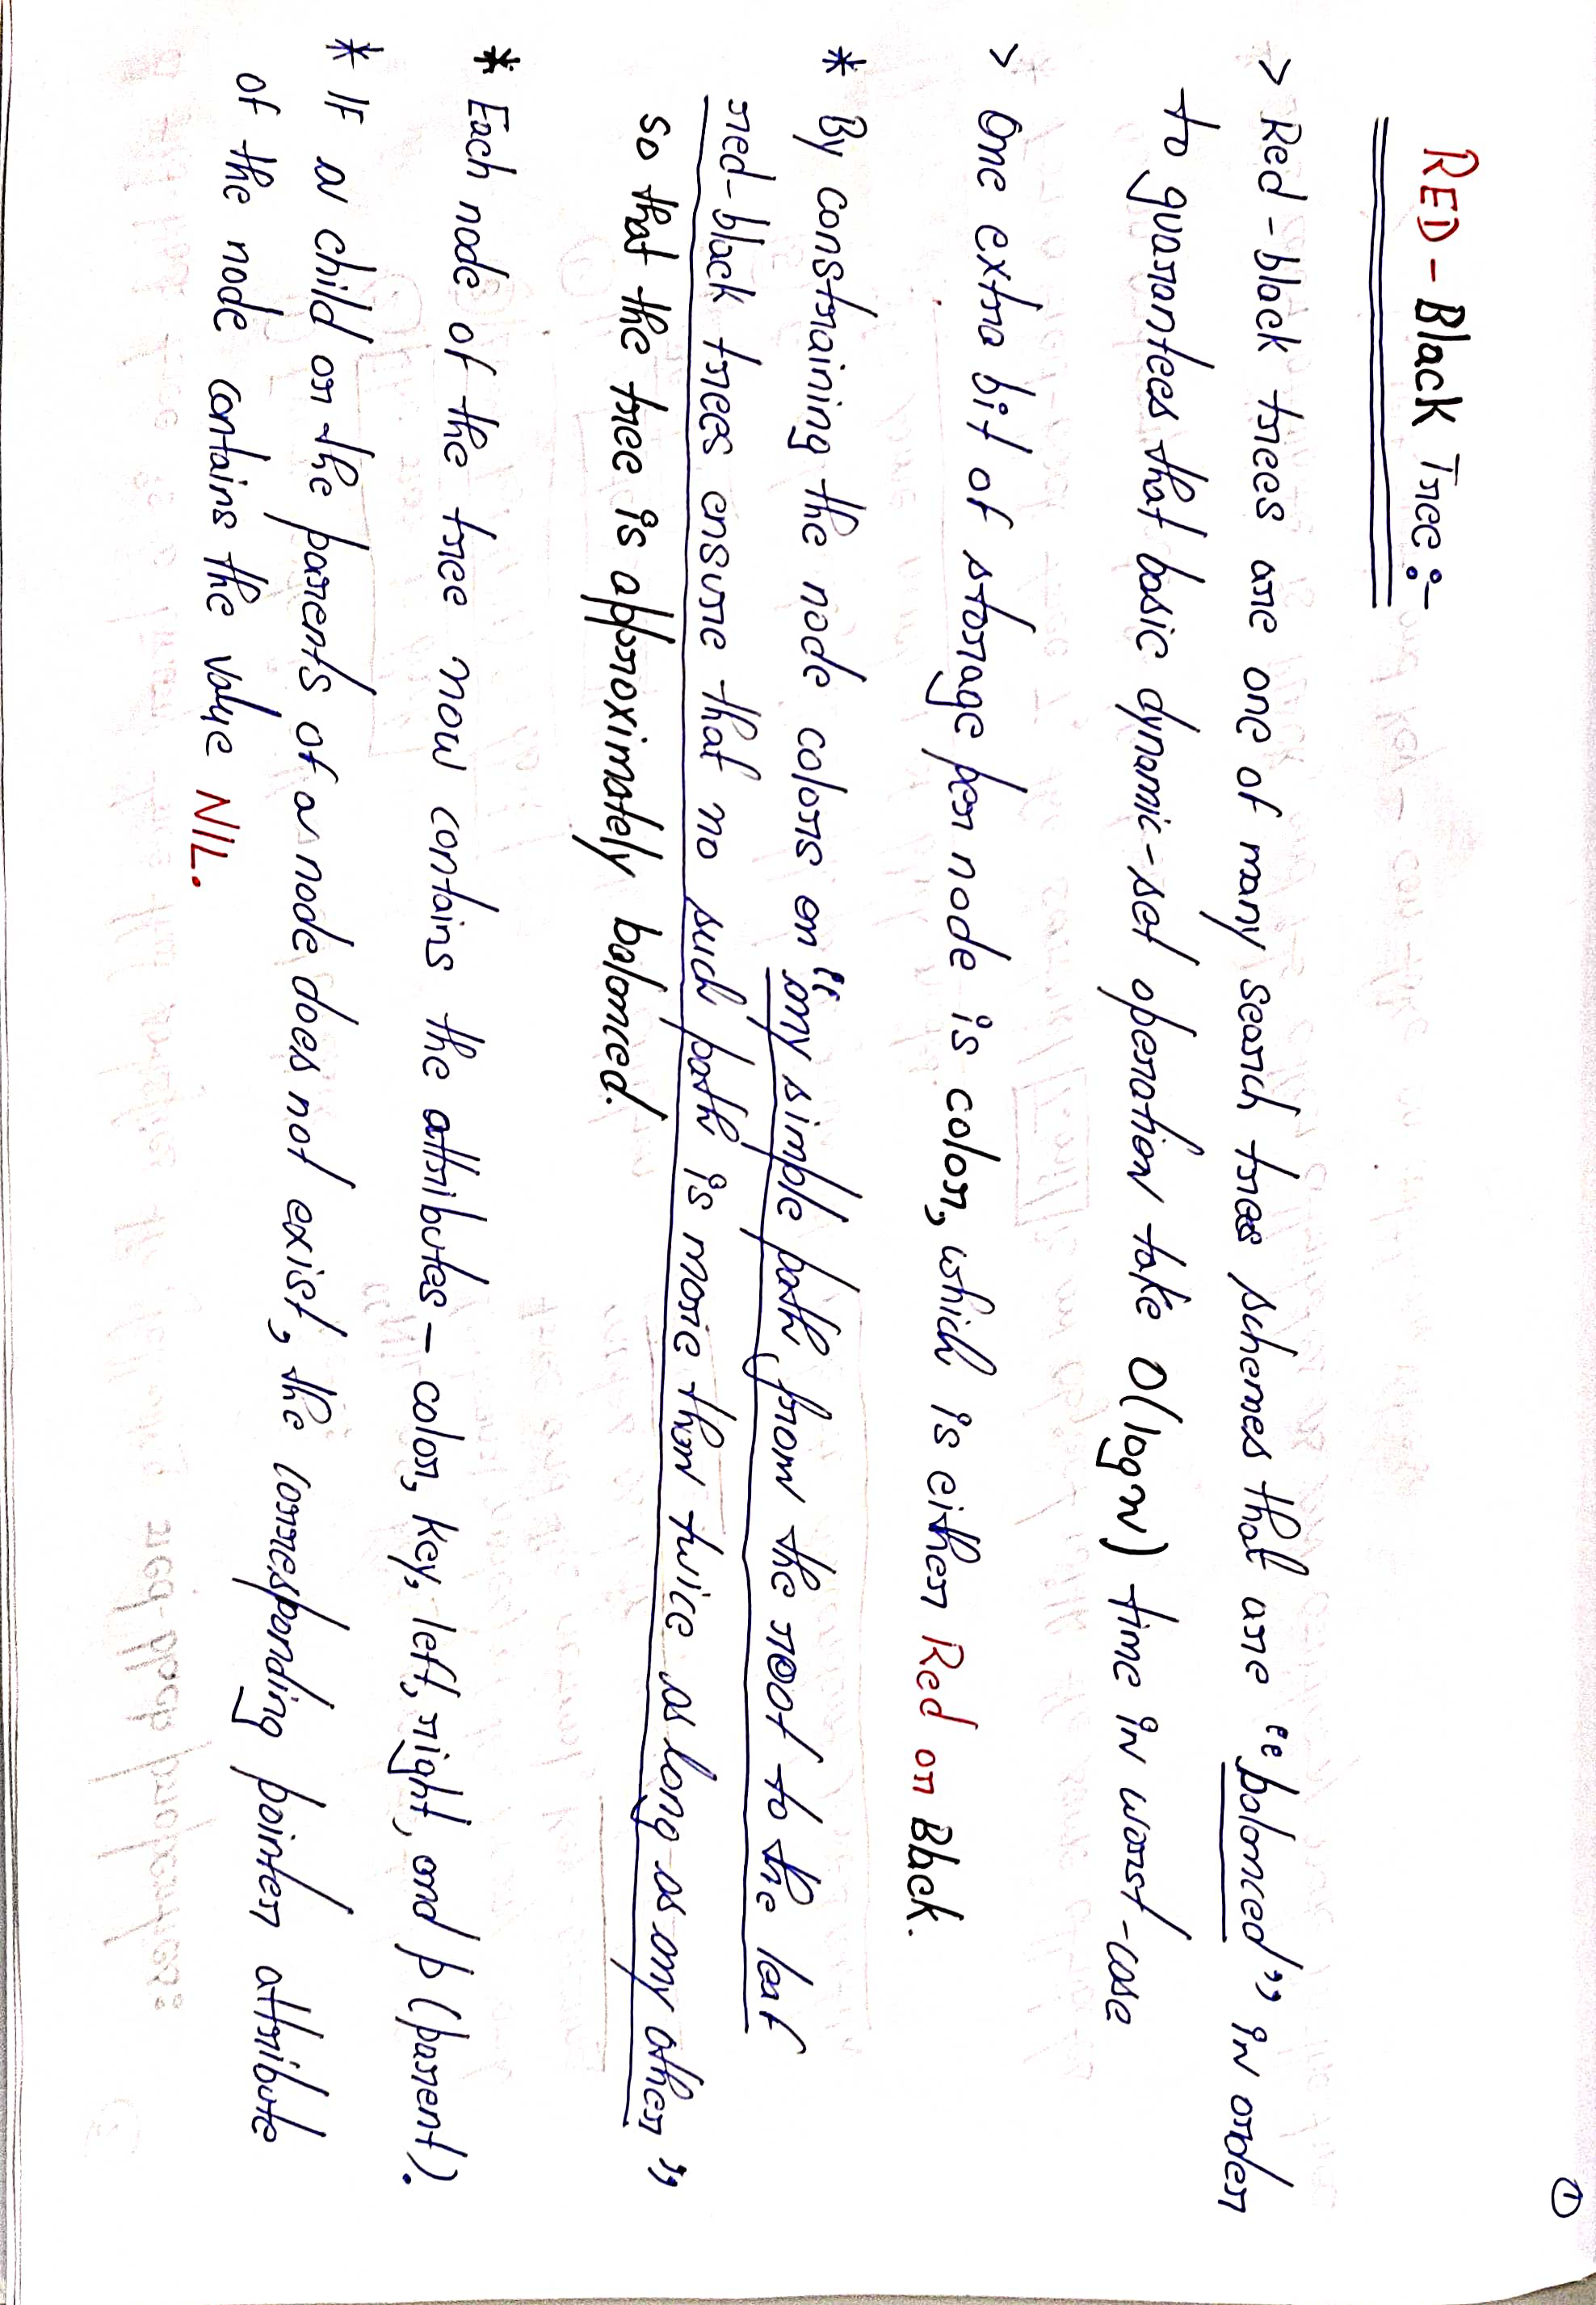 ①
RED-Black Tree:-
> Red-black trees are one of many search tress schemes that are "balanced" in order
to guarantees that basic dynamic-set operation take O(logn) time in worst-case
> One extra bit of storage per node is color, which is either Red or Black.
* By constraining the node colors on "any simple path from the root to the leaf
red-black trees ensure that no such path is more than twice as long as any other"
so that the tree is approximately balanced.
* Each node of the tree now contains the attributes - color, key, left, right, and p (parent).
* If a child or the parents of a node does not exist, the corresponding pointer attribute
of the node contains the value NIL.